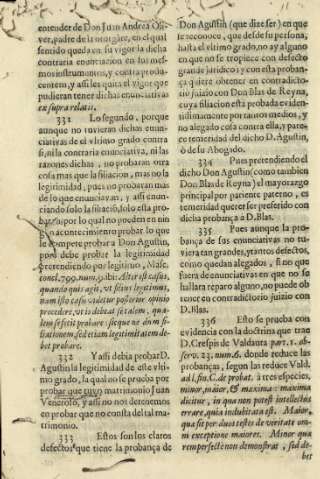 entender de Don Juan Andrea Oli-
ver, padre de la otorgãte, en el qual
sentido queda en su vigor la dicha
contraria enunciacion en los mes-
mos instrumentos, y contra produ-
centem, y assi les quita el vigor que
pudieran tener dichas enunciativas
ex supra relatis.
331 Lo segundo, porque
aunque no tuvieran dichas enun-
ciativas de el vltimo grado contra
si, ni la contraria enunciativa, ni las
razones dichas, no probaran otra
cosa mas que la filiacion, mas no la
legitimidad, pues no probavan mas
de lo que enunciavan, y assi enun-
ciando solo la filiaciõ, solo essa pro-
bar, por lo qual no pueden en nin-
acontecimiento probar lo que
le compete probar a Don Agustin,
pues debe probar la legitimidad
pretendiendo por legitimo, Masc.
concl. 799. num. 9. ibi: Aut est casus,
quando quis agit, vt filius legitimus,
nam isto casu videtur posterior opinio
procedere, vt is debeat se talem, qua-
lem se fecit probare: sicque ne dum fi-
liationem, sed etiam legitimitatem de-
bet probare.
332 Y assi debia probar D.
Agustin la legitimidad de este vlti-
mo grado, la qual no se prueba por
probar que tuvo matrimonio Juan
Venerofo, y assi no nos detenemos
en probar que no consta del tal ma-
trimonio.
333 Estos son los claros
defectos que tiene la probança de
Don Agustin (que dize ser) en que
se reconoce, que desde su persona,
hasta el vltimo grado, no ay alguno
en que no se tropiece con defecto
grande juridico; y con esta proban-
ça quiere obtener en contradicto-
rio juizio con Don Blas de Reyna,
cuya filiacion està probada eviden-
tissimamente por tantos medios, y
no alegado cosa contra ella, y pare-
ce temeridad del dicho D. Agustin,
ò de su Abogado.
334 Pues pretendiendo el
dicho Don Agustin (como tambien
Don Blas de Reyna) el mayorazgo
principal por pariente paterno, es
temeridad querer ser preferido con
dicha probança a D. Blas.
335 Pues aunque la pro-
bança de sus enunciativas no tu-
viera tan grandes, y tantos defectos,
como quedan alegados, sino que
fuera de enunciativas en que no se
hallara reparo alguno, no puede ob
tener en contradictorio juizio con
D. Blas.
336 Esto se prueba con
evidencia con la doctrina que trae
D. Crespis de Valdaura part. 1. ob-
serv. 23. num. 6. donde reduce las
probanças, segun las reduce Vald.
ad l. fin. C. de probat. à tres especies,
minor, maior, & maxima: maxima
dicitur, in qua non potest intellectus
errare, quia indubitata est. Maior,
qua fit per duos testes de veritate om-
ni exceptione maiores. Minor qua
rem perfectè non demonstrat, sed de-
bet